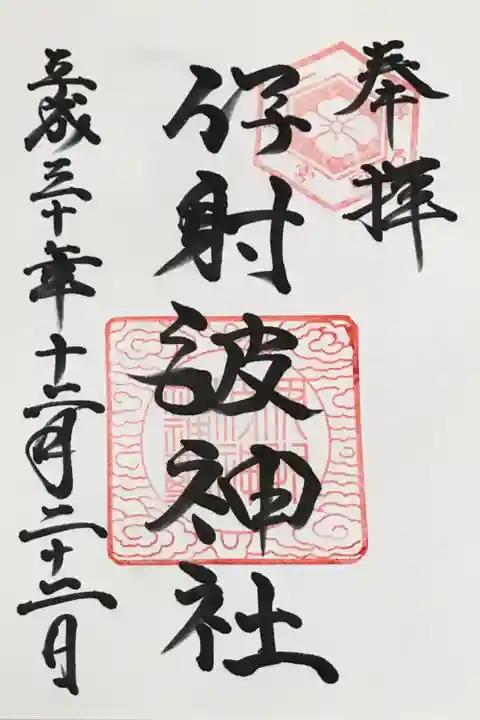 奉拝
伊射波神社
平成三十年十二月二十二日